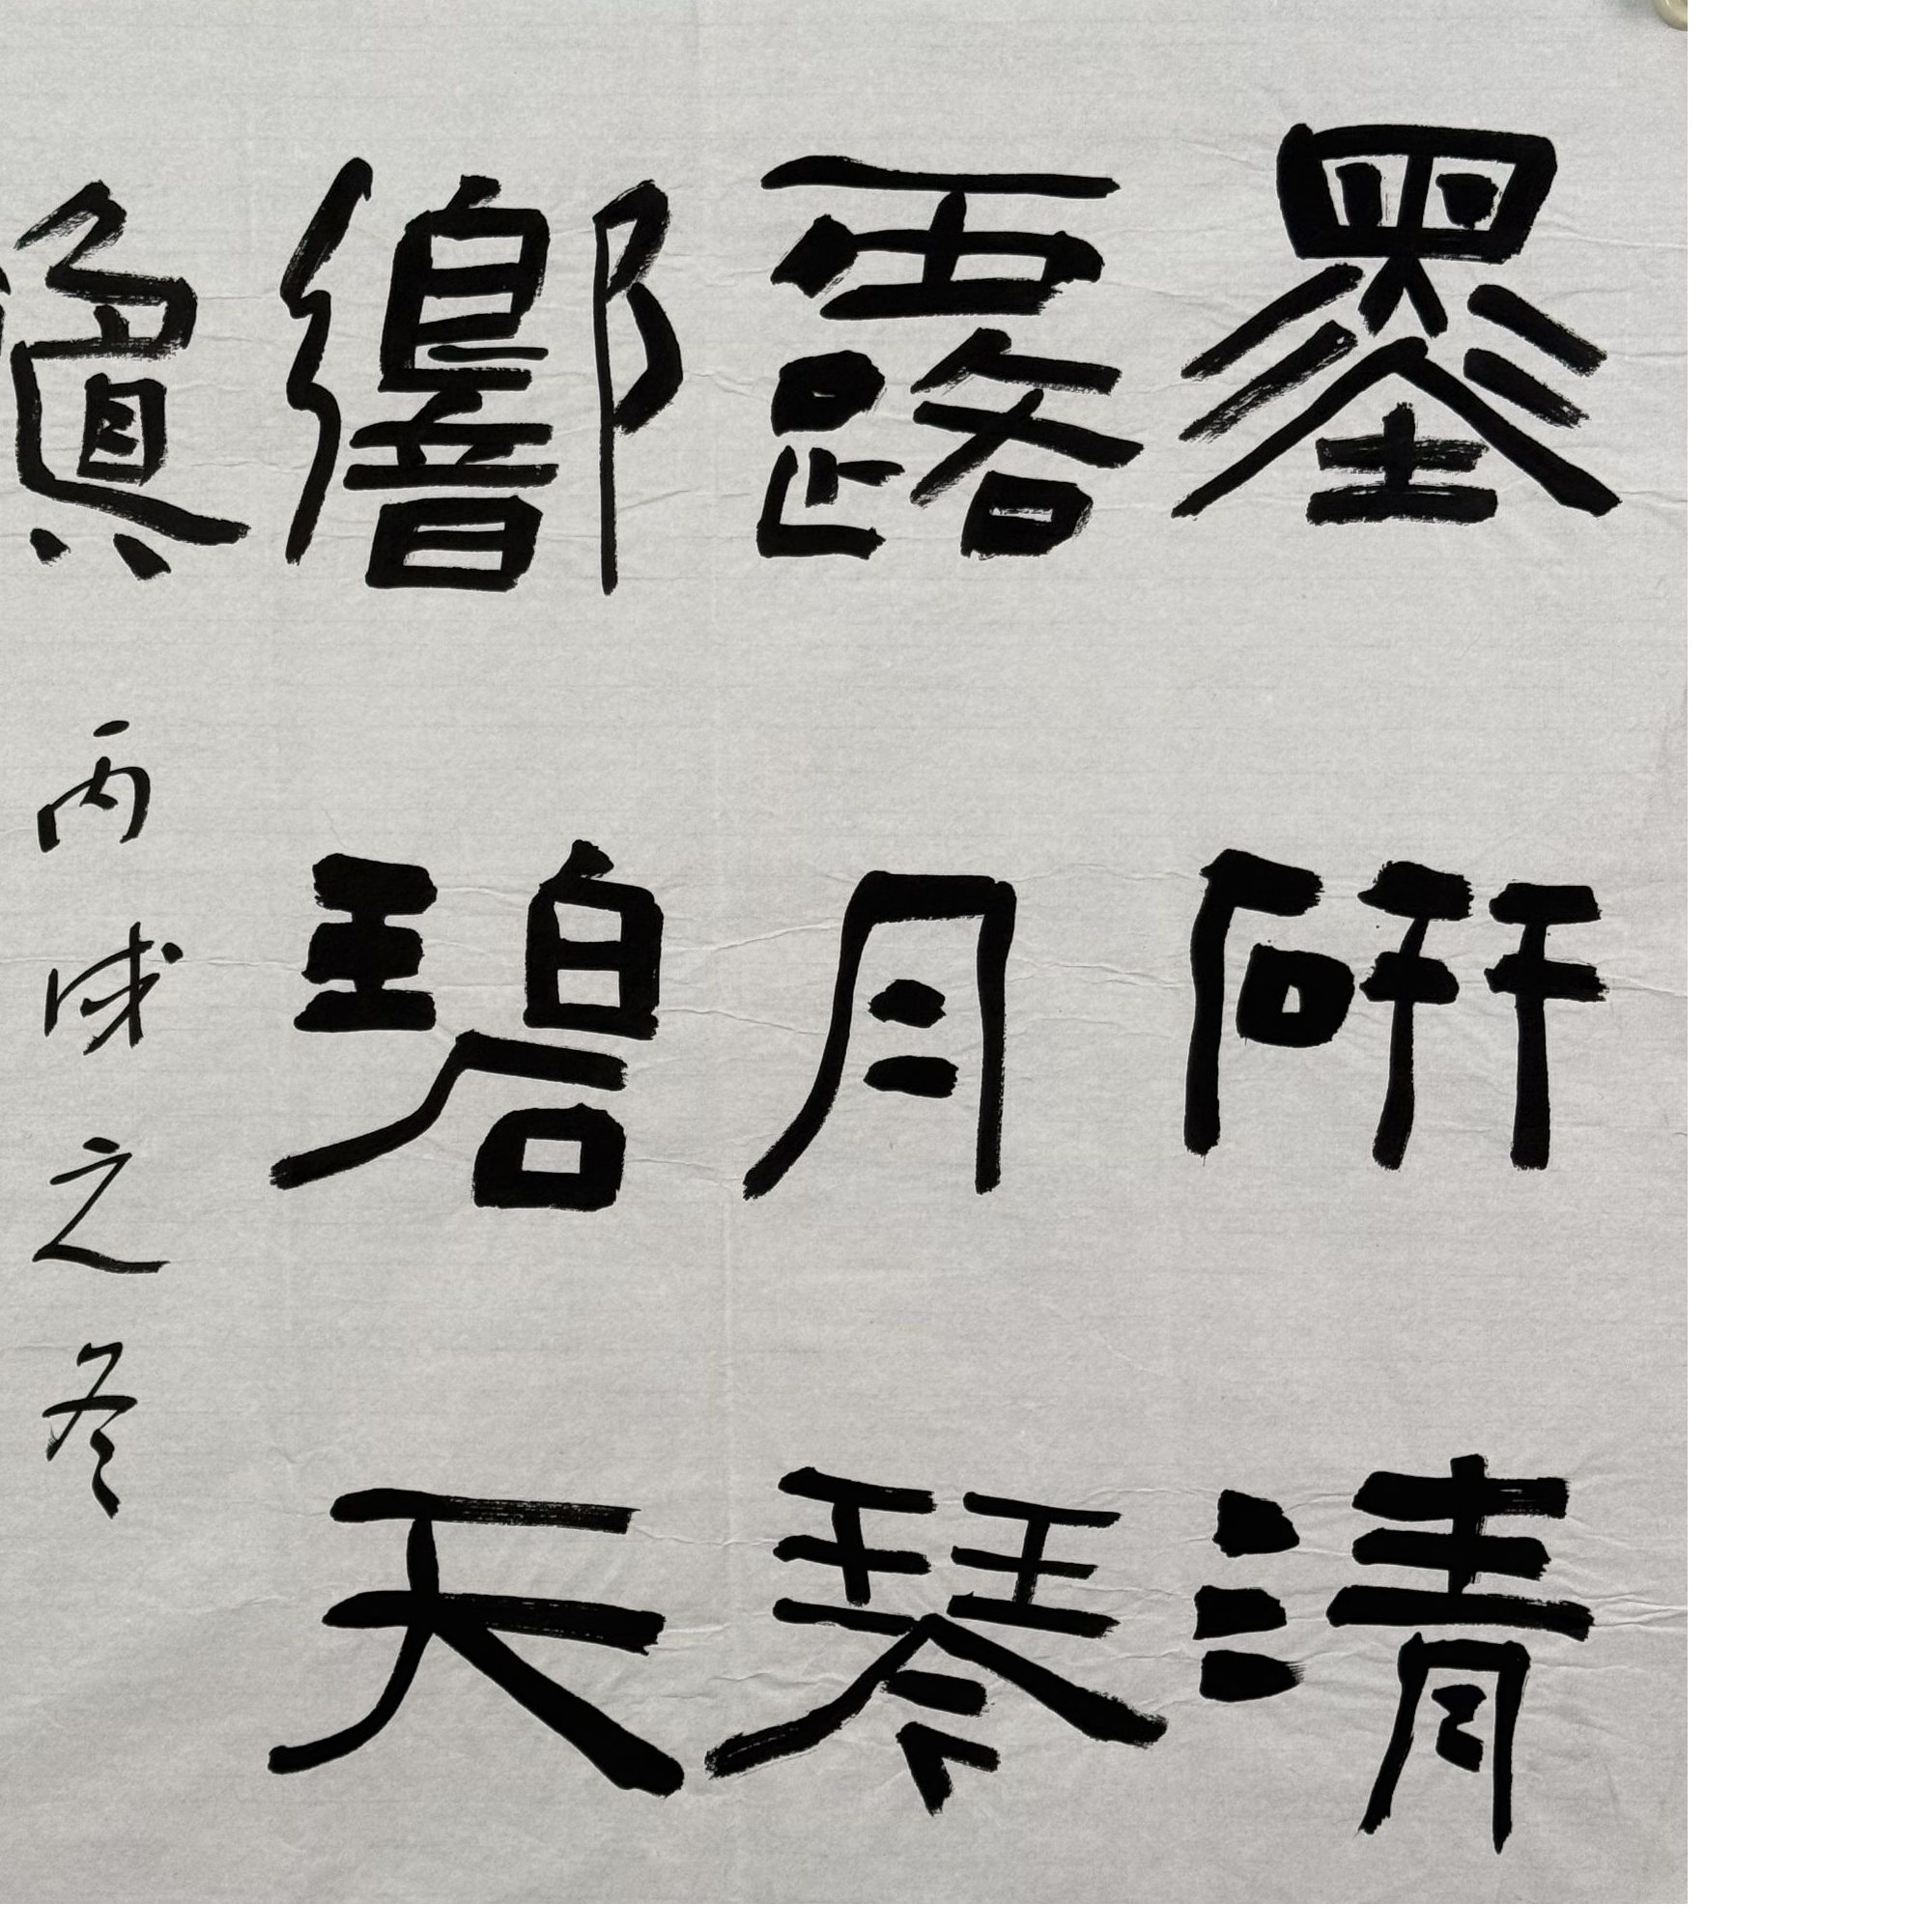 墨研清
露月琴
響碧天
丙戌之冬